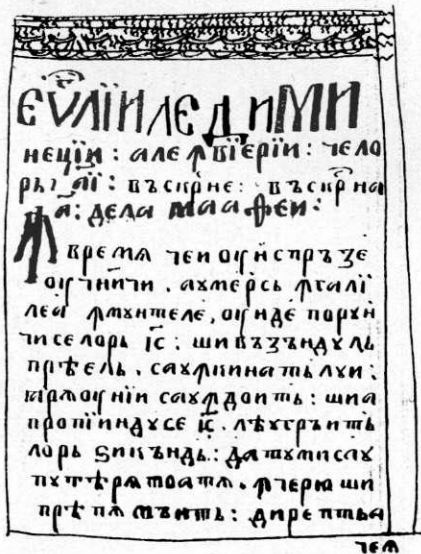 ЕѴЛЇИЛЕ ДИМИ
нецїи : але ꙟвїерїи : чело
рь аі : въскрне : въскр на
а҃ : дела маафеи :
ꙟ время чеи оун спръзе
оучничи . аумерсь ꙟгалї
леа ꙟмунтеле , оунде порун
чиселорь іс : шивъзъндуль
прѣель . сауꙟкинать луи :
іарѫ оунїи сауꙟдоить : шиа
пропїиндусе іс . лѣугръить
лорь ѕикъндь : датумисау
путѣря тоатя . ꙟчерю ши
прѣ пямънть : дирептьа
чея